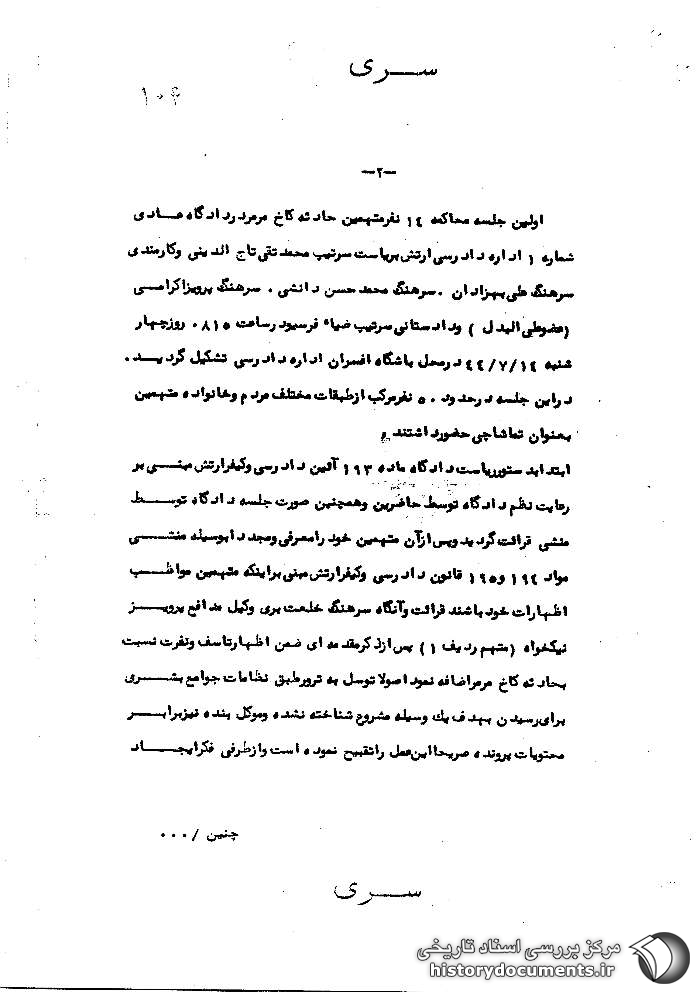 سری
۱۰۴
-۲-
اولین جلسه محاکمه ۱٤ نفرمتهمین حادثه کاخ مرمردردادگاه عادی
شماره ۱ اداره دادرسی ارتش بریاست سرتیپ محمد تقی تاج الدینی وکارمندی
سرهنگ علی بهزادان . سرهنگ محمد حسن دانشی . سرهنگ پرویزاکرامی
(عضوعلی البدل ) ودادستانی سرتیپ ضیاء فرسیود رساعت ۸۱۵ . روزچهار
شنبه ٤٤/۷/۱٤ درمحل باشگاه افسران اداره دادرسی تشکیل گردید .
دراین جلسه درحدود ۵۰ نفرمرکب ازطبقات مختلف مردم وخانواده متهمین
بعنوان تماشاچی حضورداشتند .
ابتدابدستورریاست دادگاه ماده ۱۹۳ آئین دادرسی وکیفرارتش مبنی بر
رعایت نظم دادگاه توسط حاضرین وهمچنین صورت جلسه دادگاه توسط
منشی قرائت گردیدوپس ازآن متهمین خود رامعرفی ومجددابوسیله منشی
مواد ۱۹٤ و۱۹۵ قانون دادرسی وکیفرارتش مبنی براینکه متهمین مواظب
اظهارات خود باشند قرائت وآنگاه سرهنگ خلعت بری وکیل مدافع پرویز
نیکخواه (متهم ردیف ۱) پس ازذکرمقدمه ای ضمن اظهارتاسف ونفرت نسبت
بحادثه کاخ مرمراضافه نمود اصولا توسل به ترورطبق نظامات جوامع بشری
برای رسیدن بهدف یك وسیله مشروع شناخته نشده وموکل بنده نیزبرابر
محتویات پرونده صریحااین عمل راتقبیح نموده است وازطرفی فکرایجاد
چنین /۰۰۰
سری
مرکز بررسی اسناد تاریخی
historydocuments.ir